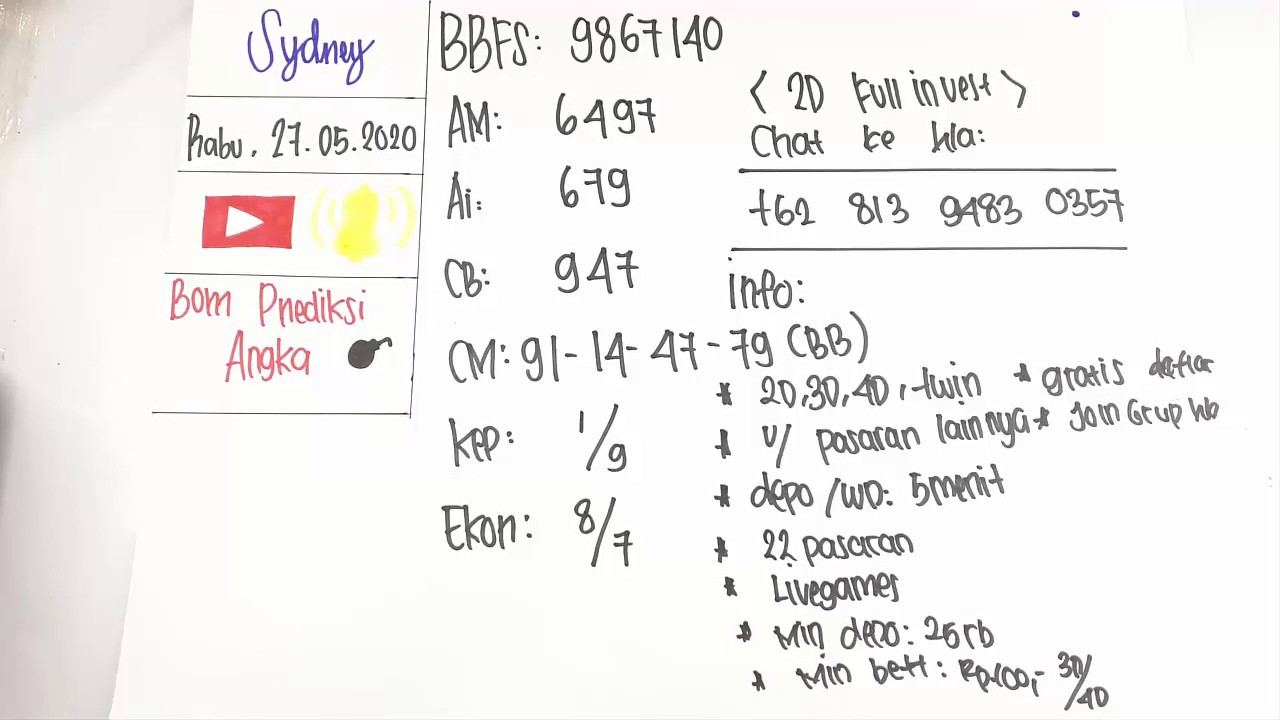 Sydney
Rabu, 27.05.2020
Bom Prediksi
Angka
BBFS: 9867140
AM: 6497
Ai: 679
CB: 947
CM: 91-14-47-79 (BB)
Kep: 1/9
Ekon: 8/7
< 2D Full invest >
Chat ke Wa:
+62 813 9483 0357
Info:
* 2D,3D,4D, twin * gratis daftar
* U/ pasaran lainnya * Join Grup Wb
* depo/WD: 5menit
* 22 pasaran
* Livegames
* Min depo: 25rb
* Min bett: Rp.100,- 3D/4D